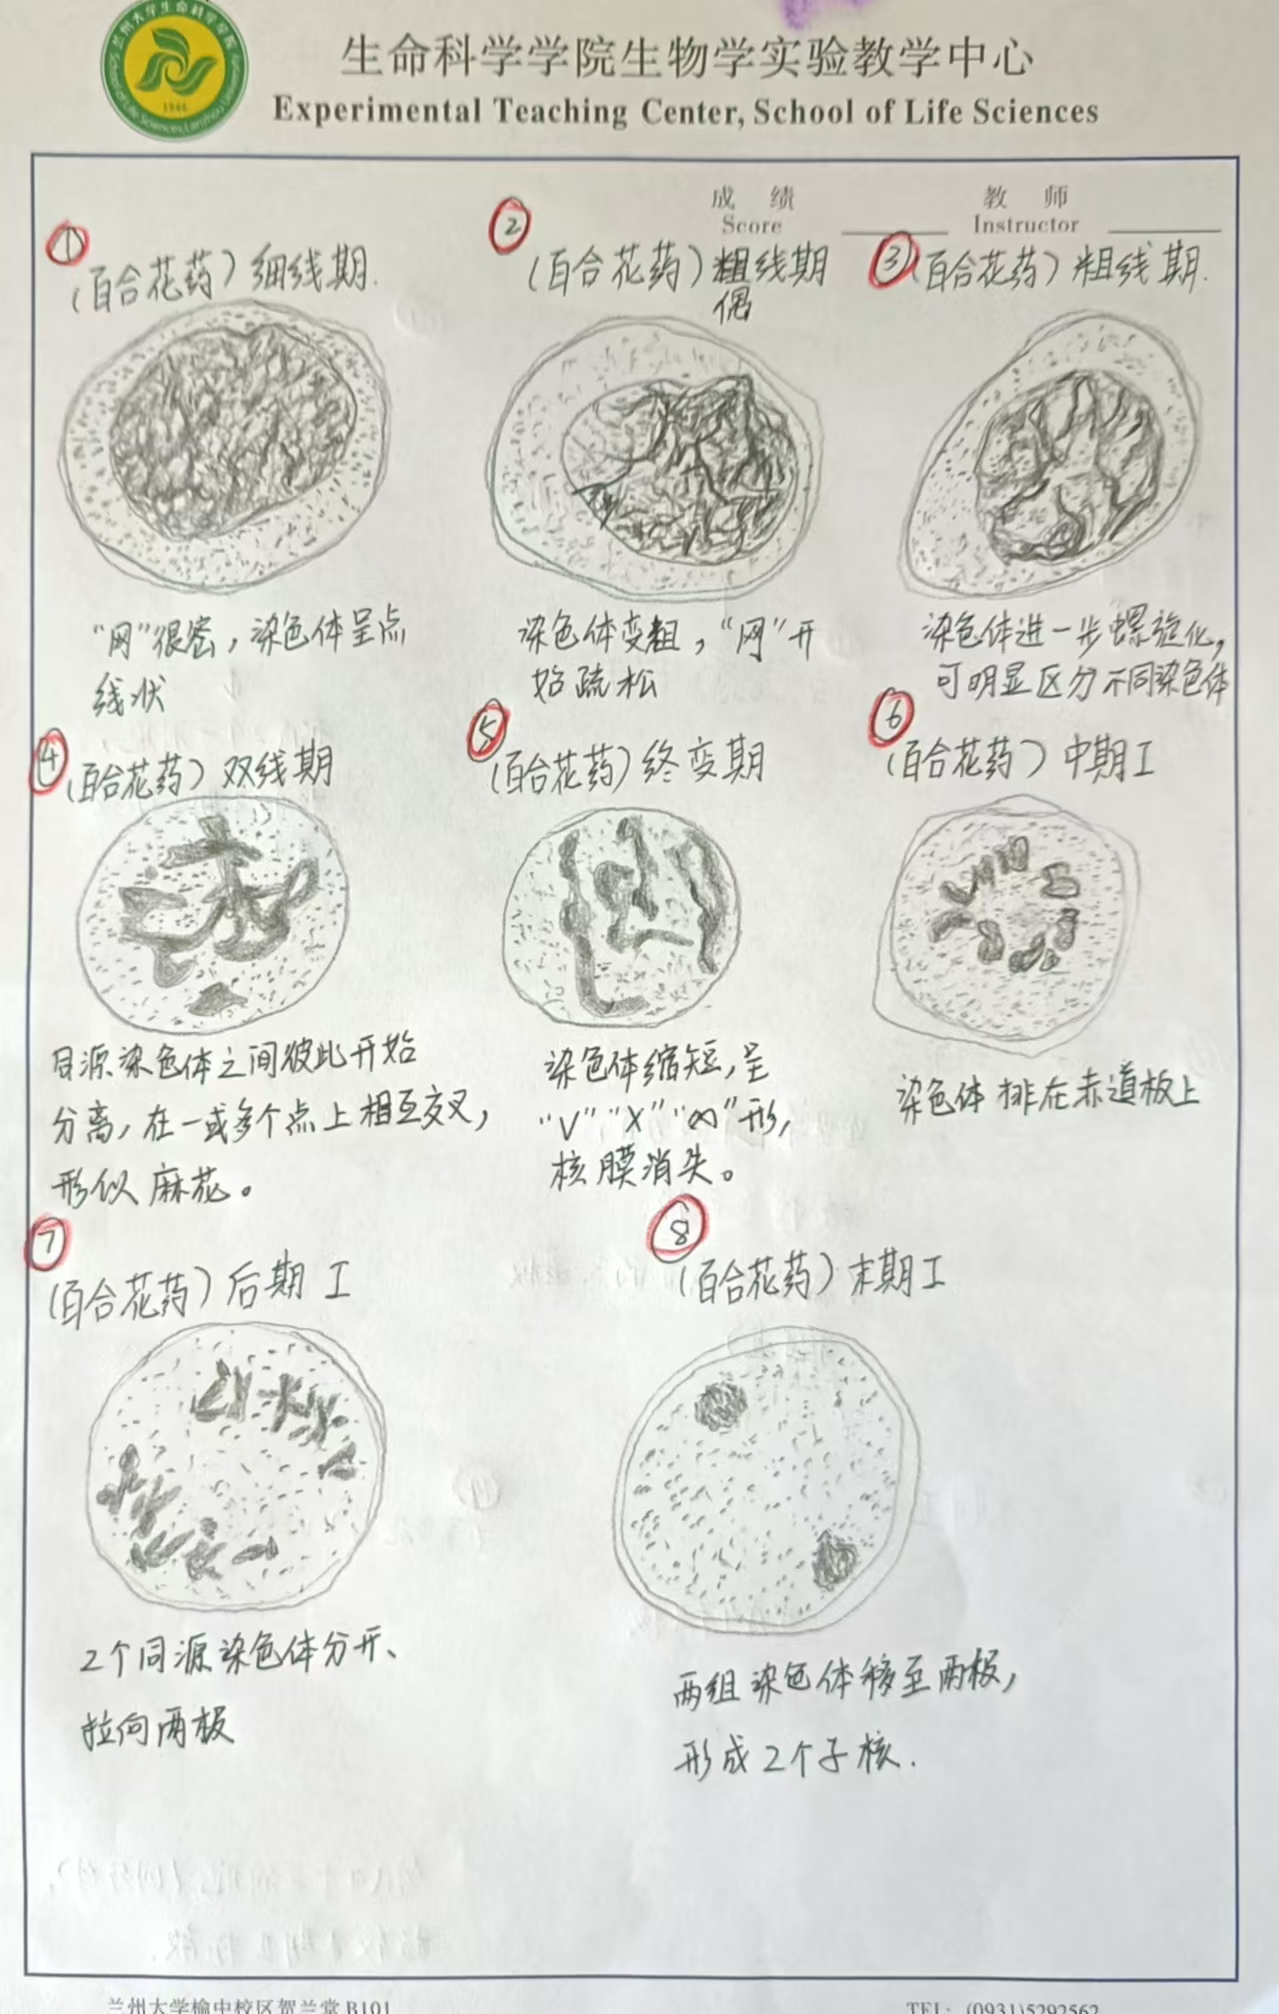 兰州大学生命科学学院
1946
School of Life Sciences, Lanzhou University
生命科学学院生物学实验教学中心
Experimental Teaching Center, School of Life Sciences
成 绩
Score
教 师
Instructor
①
(百合花药)细线期.
②
(百合花药)粗线期
偶
③
(百合花药)粗线期.
“网”很密,染色体呈点
线状
染色体变粗,“网”开
始疏松
染色体进一步螺旋化,
可明显区分不同染色体
④
(百合花药)双线期
⑤
(百合花药)终变期
⑥
(百合花药)中期I
同源染色体之间彼此开始
分离,在一或多个点上相互交叉,
形似麻花。
染色体缩短,呈
“V”“X”“∞”形,
核膜消失。
染色体排在赤道板上
⑦
(百合花药)后期I
⑧
(百合花药)末期I
2个同源染色体分开、
拉向两极
两组染色体移至两极,
形成2个子核.
兰州大学榆中校区贺兰堂B101
TEL: (0931)5292562